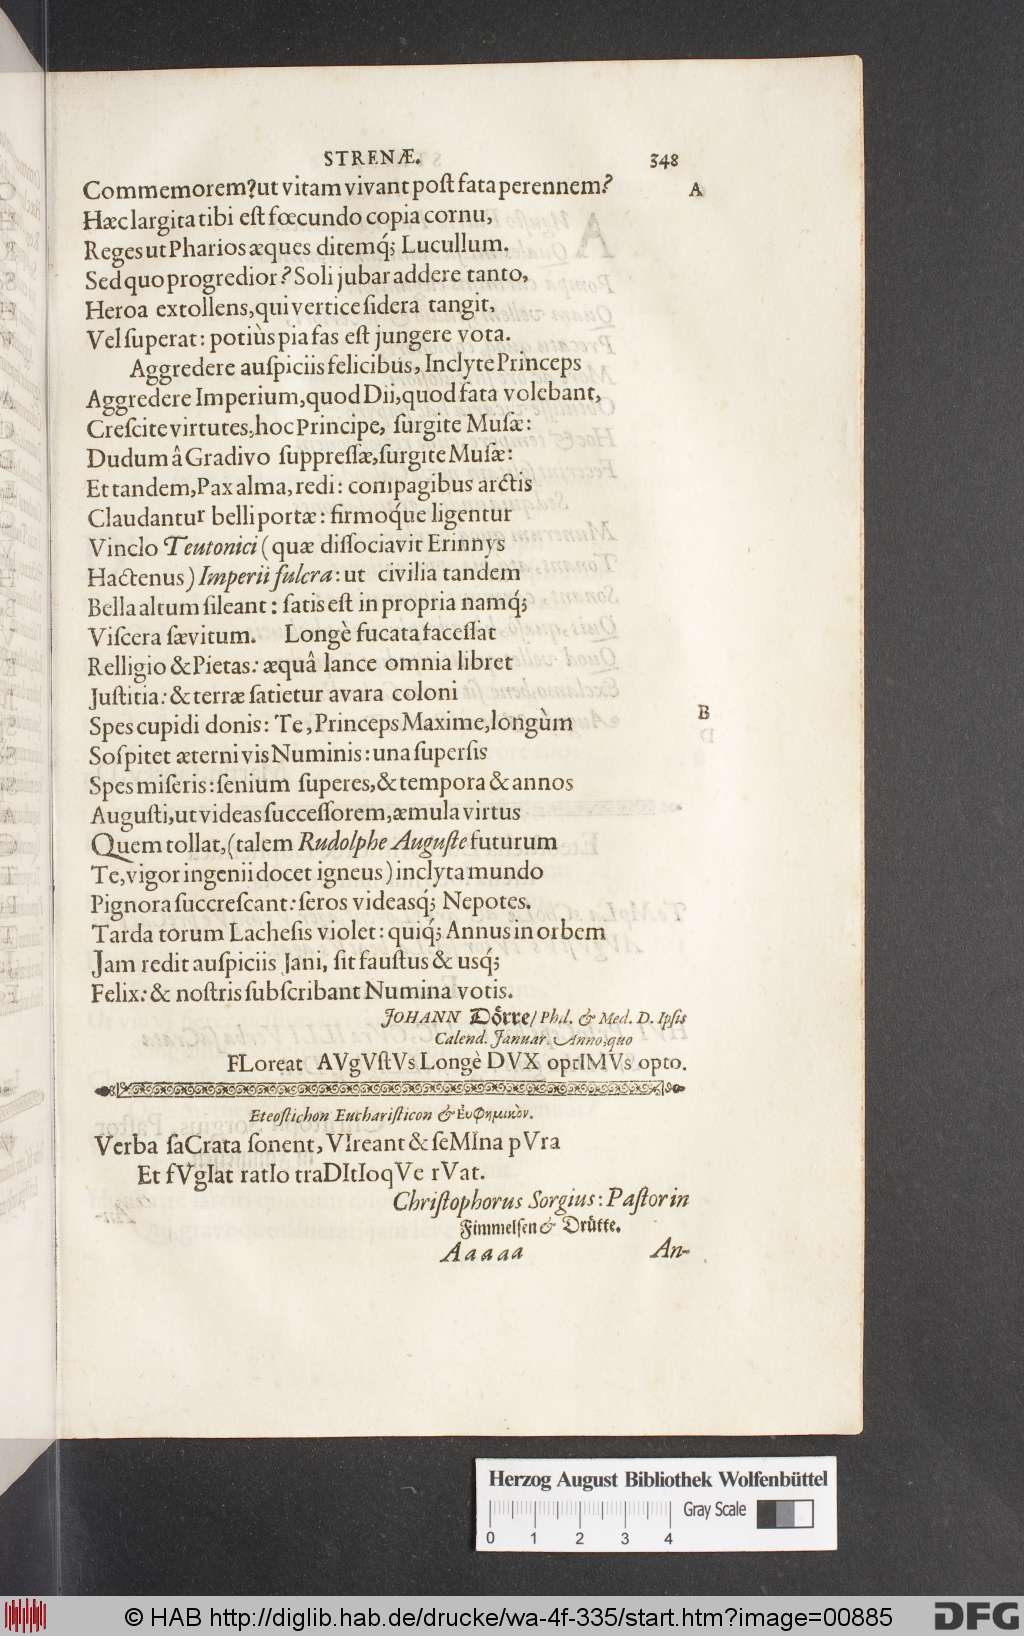 STRENÆ. 348
Commemorem? ut vitam vivant poſt fata perennem? A
Hæc largita tibi eſt fœcundo copia cornu,
Reges ut Pharios æques ditemq́; Lucullum.
Sed quo progredior? Soli jubar addere tanto,
Heroa extollens, qui vertice ſidera tangit,
Vel ſuperat: potiùs pia fas eſt jungere vota.
Aggredere auſpiciis felicibus, Inclyte Princeps
Aggredere Imperium, quod Dii, quod fata volebant,
Creſcite virtutes, hoc Principe, ſurgite Muſæ:
Dudum â Gradivo ſuppreſſæ, ſurgite Muſæ:
Et tandem, Pax alma, redi: compagibus arctis
Claudantur belli portæ: firmoq́ue ligentur
Vinclo Teutonici (quæ diſſociavit Erinnys
Hactenus) Imperii fulcra: ut civilia tandem
Bella altum ſileant: ſatis eſt in propria namq́;
Viſcera ſævitum. Longè fucata faceſſat
Relligio & Pietas: æquâ lance omnia libret
Juſtitia: & terræ ſatietur avara coloni
Spes cupidi donis: Te, Princeps Maxime, longùm B
Soſpitet æterni vis Numinis: una ſuperſis
Spes miſeris: ſenium ſuperes, & tempora & annos
Auguſti, ut videas ſucceſſorem, æmula virtus
Quem tollat, (talem Rudolphe Auguſte futurum
Te, vigor ingenii docet igneus) inclyta mundo
Pignora ſuccreſcant: ſeros videasq́; Nepotes.
Tarda torum Lacheſis violet: quiq́; Annus in orbem
Jam redit auſpiciis Jani, ſit fauſtus & usq́;
Felix: & noſtris ſubſcribant Numina votis.
JOHANN Dörre/ Phil. & Med. D. Ipſis
Calend. Januar. Anno, quo
FLoreat AVgVſtVs Longè DVX optIMVs opto.
Eteoſtichon Euchariſticon & Ἐυφημικὸν.
Verba ſaCrata ſonent, VIreant & ſeMIna pVra
Et fVgIat ratIo traDItIoqVe rVat.
Chriſtophorus Sorgius: Paſtor in
Fimmelſen & Drütte.
A a a a a An-
Herzog August Bibliothek Wolfenbüttel
Gray Scale
0 1 2 3 4
© HAB http://diglib.hab.de/drucke/wa-4f-335/start.htm?image=00885
DFG